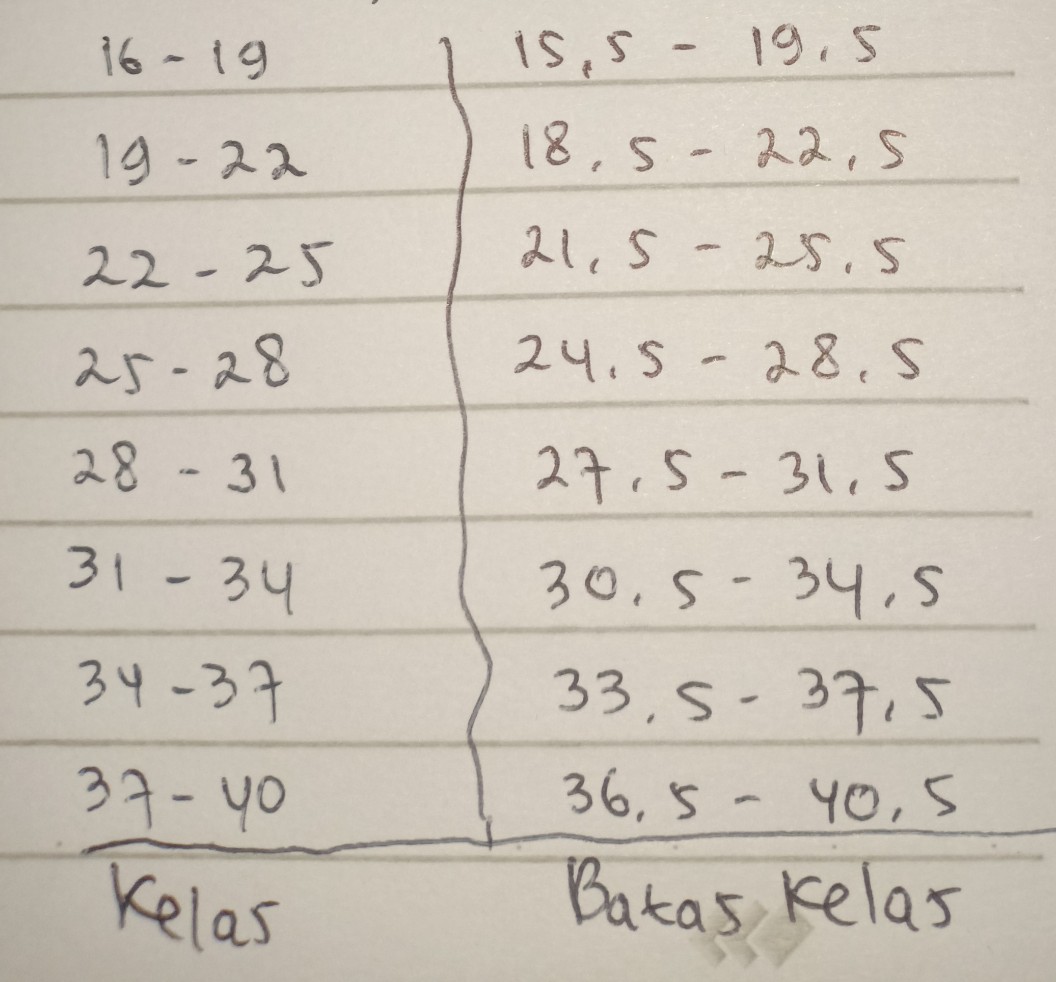 16 - 19 15,5 - 19,5
19 - 22 18,5 - 22,5
22 - 25 21,5 - 25,5
25 - 28 24,5 - 28,5
28 - 31 27,5 - 31,5
31 - 34 30,5 - 34,5
34 - 37 33,5 - 37,5
37 - 40 36,5 - 40,5
Kelas Batas Kelas